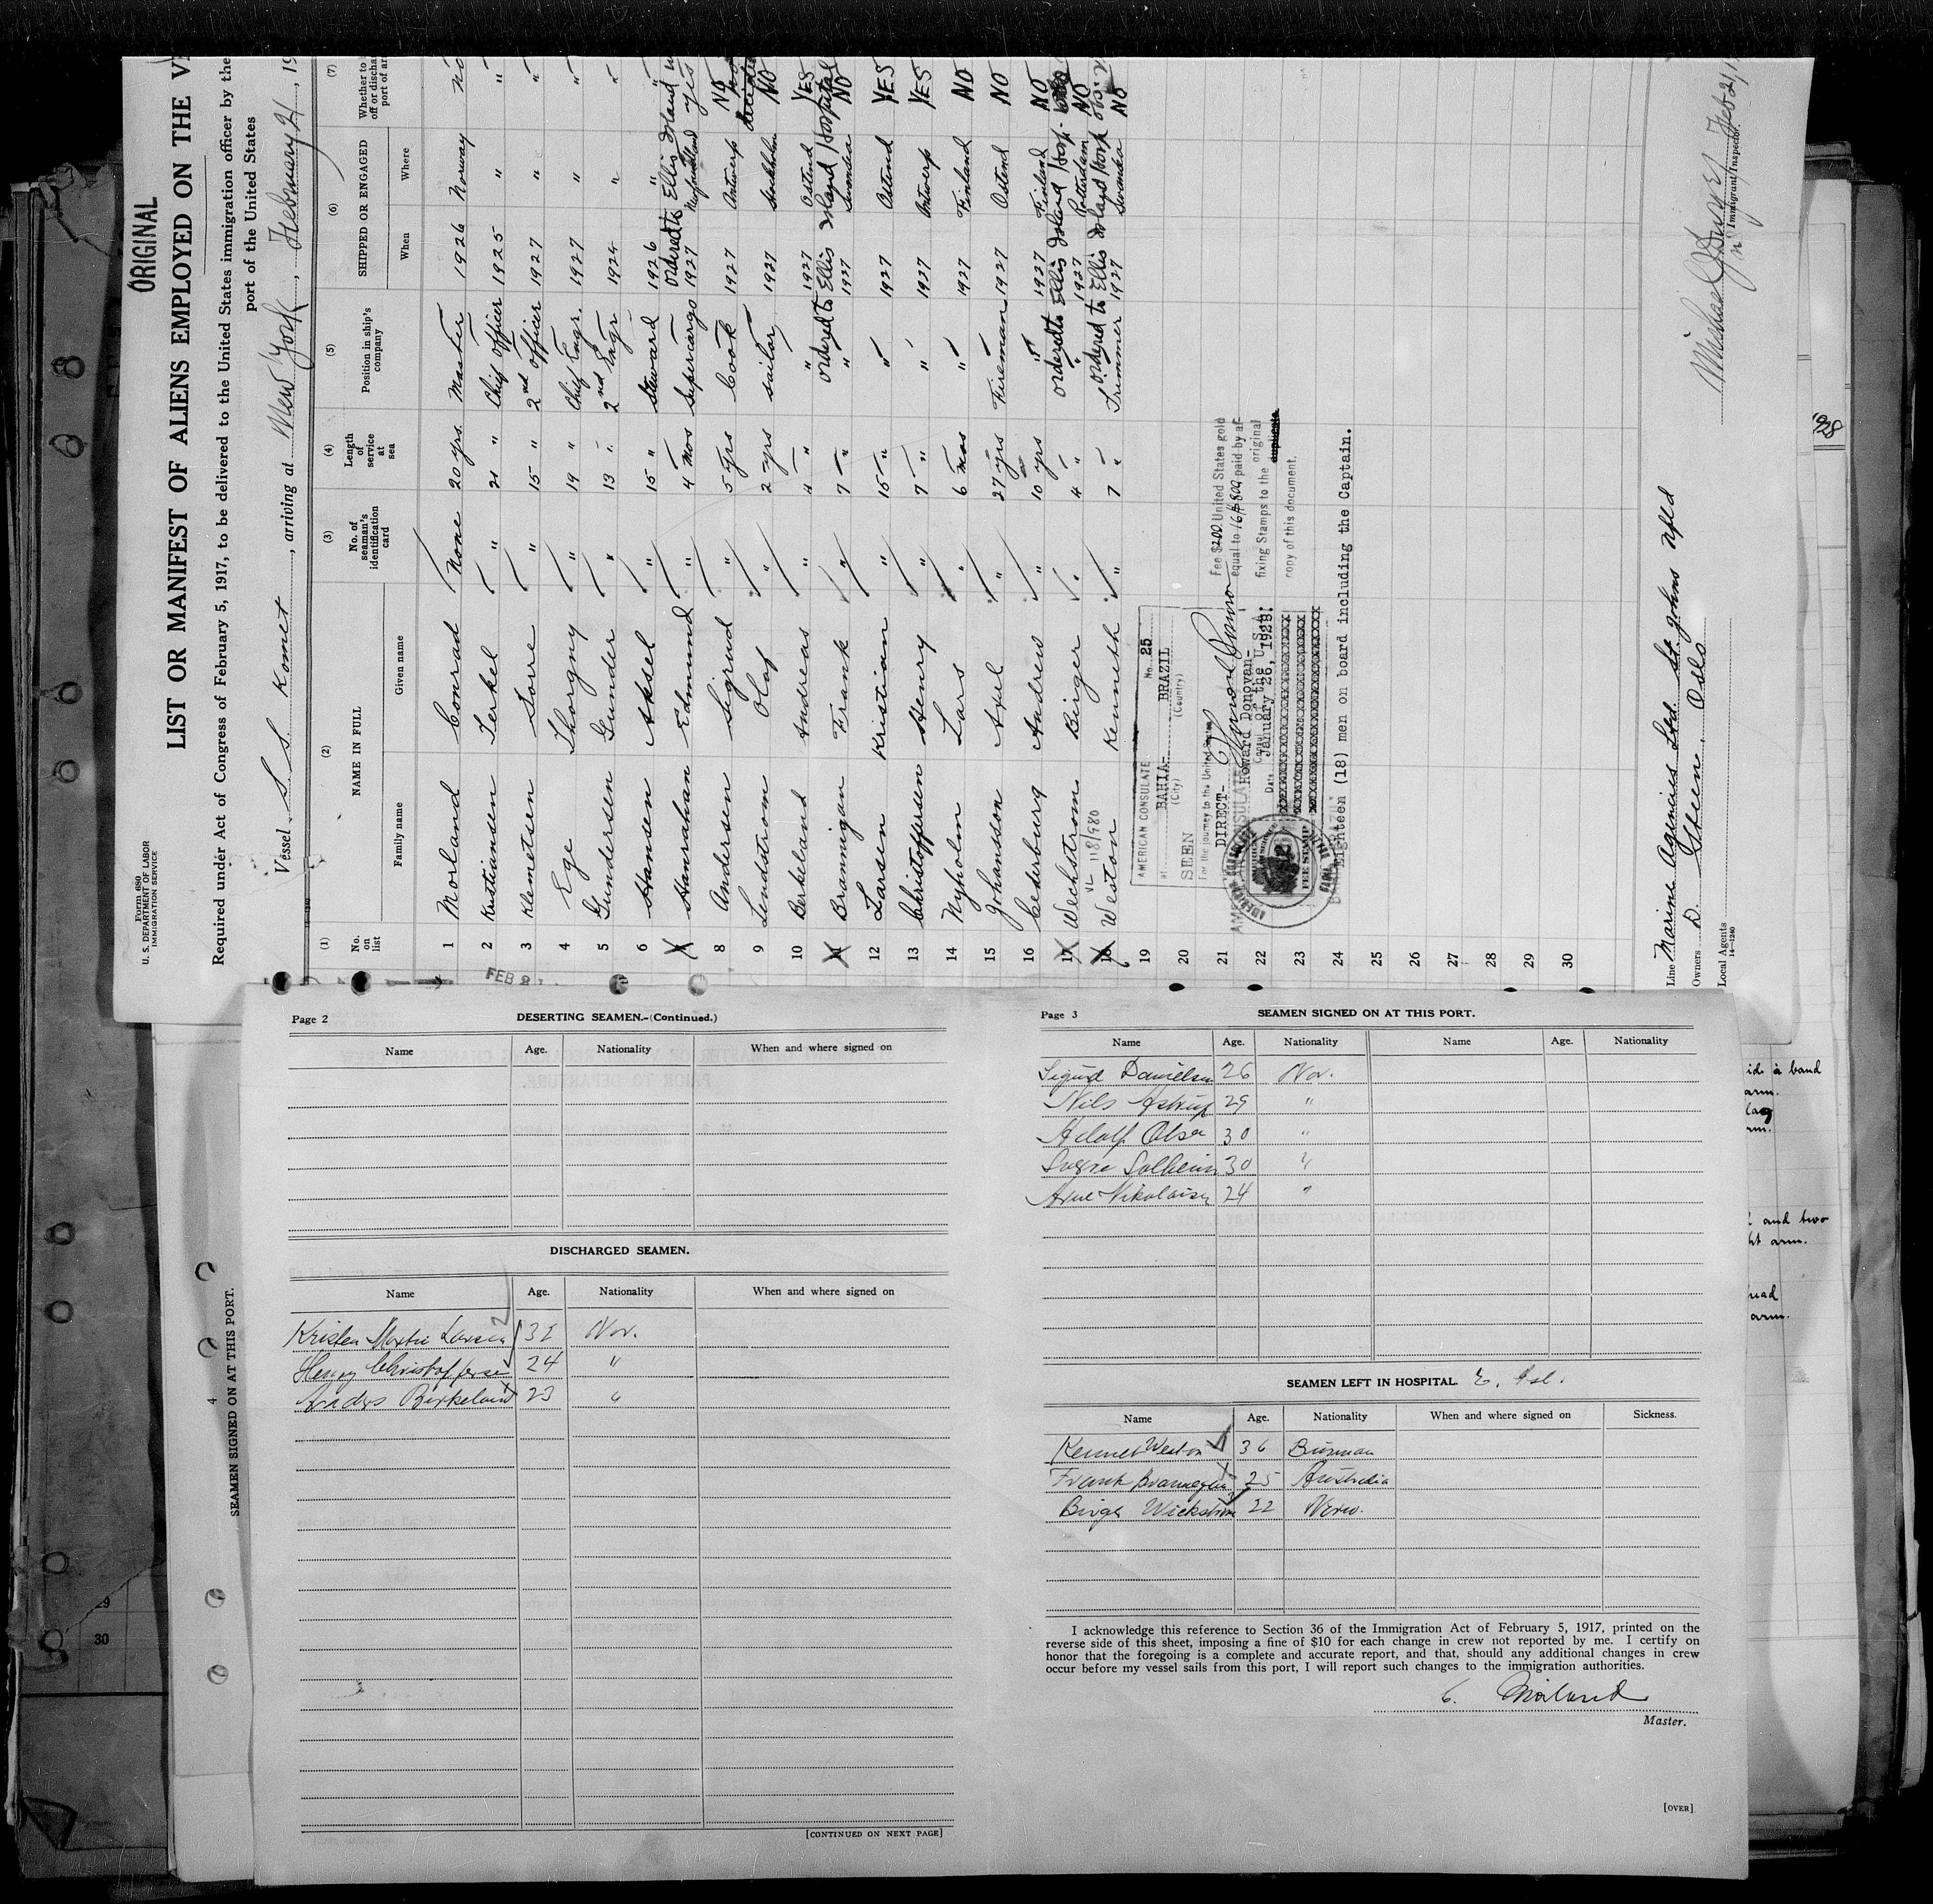 ORIGINAL
Form 680
U. S. DEPARTMENT OF LABOR
IMMIGRATION SERVICE
LIST OR MANIFEST OF ALIENS EMPLOYED ON THE V
Required under Act of Congress of February 5, 1917, to be delivered to the United States immigration officer by the
port of the United States
Vessel S. S. Komet, arriving at New York, February 21, 19
(1) (2) (3) (4) (5) (6) (7)
No. on list NAME IN FULL No. of seaman's identification card Length of service at sea Position in ship's company SHIPPED OR ENGAGED Whether to
off or dischar
port of ar
Family name Given name When Where
1 Morland Conrad None 20 yrs. Master 1926 Norway no
2 Kristiansen Terkel " 21 " Chief Officer 1925 " "
3 Klemetsen Sorre " 15 " 2nd Officer 1927 " "
4 Ege Thorgny " 19 " Chief Engr. 1927 " "
5 Gundersen Gunder " 13 " 2nd Engr 1924 " "
6 Hansen Aksel " 15 " Steward 1926 " "
ordered to Ellis Island
7 Hanrahan Edmund " 4 mos Supercargo 1927 Newfoundland yes
8 Andersen Sigrud " 5 yrs Cook 1927 Antwerp NO
9 Lindstrom Olaf " 2 yrs sailor 1927 Stockholm NO
10 Berkeland Andreas " 4 " " 1927 Ostend YES
ordered to Ellis Island Hospital
11 Brannigan Frank " 7 " " 1927 Swansea NO
12 Larsen Kristian " 15 " " 1927 Ostend YES
13 Christoffersen Henry " 7 " " 1927 Antwerp YES
14 Nyholm Lars " 6 mos " 1927 Finland NO
15 Johansson Axel " 27 yrs Fireman 1927 Ostend NO
16 Cederburg Andrew " 10 yrs " 1927 Finland NO
ordered to Ellis Island Hosp.
17 Wechstrom Birger " 4 " " 1927 Rotterdam NO
VL 118/980
ordered to Ellis Island Hosp
18 Weston Kenneth " 7 " Trimmer 1927 Swansea NO
19
20
21
22
23
24
25
26
27
28
29
30
AMERICAN CONSULATE No. 25
at BAHIA- BRAZIL
(City) (Country)
SEEN
For the journey to the United States
DIRECT-
Howard Donovan
Howard Donovan-
Consul of the U.S.A.
Date January 26, 1928.
Fee $2.00 United States gold
equal to 16$800, paid by af-
fixing Stamps to the original
duplicate
copy of this document.
FEE STAMP
Eighteen (18) men on board including the Captain.
Line Marine Agencies Ltd. St. Johns Nfld
Owners D. Gbeen. Oslo
Local Agents
14—1240
Feb 21, 1
Immigrant Inspector.
FEB 21
Page 2
DESERTING SEAMEN.–(Continued.)
Name Age. Nationality When and where signed on
DISCHARGED SEAMEN.
Name Age. Nationality When and where signed on
Kristen Martin Larsen 32 Nor.
Henry Christoffersen 24 "
Anders Birkeland 23 "
[CONTINUED ON NEXT PAGE]
Page 3
SEAMEN SIGNED ON AT THIS PORT.
Name Age. Nationality Name Age. Nationality
Sigurd Danielsen 26 Nor.
Nils Astrup 29 "
Adolf Olsen 30 "
Sverre Solheim 30 "
Axel Nikolaisen 24 "
SEAMEN LEFT IN HOSPITAL. E. Isl.
Name Age. Nationality When and where signed on Sickness.
Kennet Weston 36 Burman
Frank Brannegan 25 Australia
Birger Wickstrom 22 Norw.
I acknowledge this reference to Section 36 of the Immigration Act of February 5, 1917, printed on the
reverse side of this sheet, imposing a fine of $10 for each change in crew not reported by me. I certify on
honor that the foregoing is a complete and accurate report, and that, should any additional changes in crew
occur before my vessel sails from this port, I will report such changes to the immigration authorities.
C. Morland
Master.
[OVER]
4
SEAMEN SIGNED ON AT THIS PORT.
29
30
a band
arm.
and two
arm.
arm.